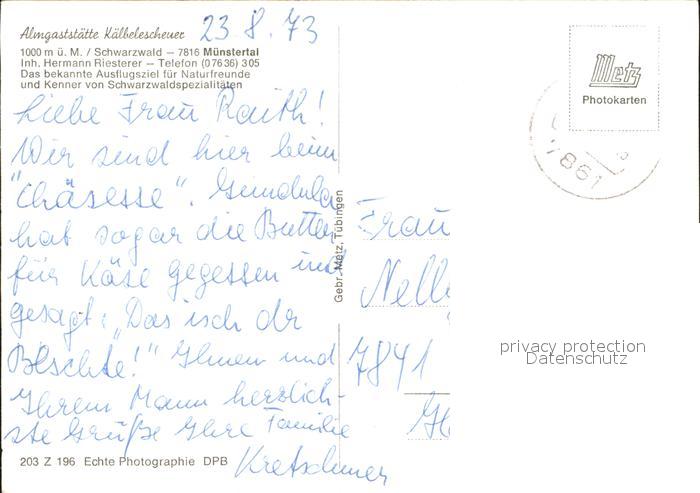 Almgaststätte Kälbelescheuer
23 8. 73
1000 m ü. M. / Schwarzwald – 7816 Münstertal
Inh. Hermann Riesterer – Telefon (07636) 305
Das bekannte Ausflugsziel für Naturfreunde
und Kenner von Schwarzwaldspezialitäten
Liebe Frau Raith!
Wir sind hier beim
"Chäsesse".
hat sogar die Butter
für Käse gegessen und
gesagt: „Das isch dr
Bescht!" Ihnen und
Ihrem Mann herzlich-
ste Grüße Ihre Familie
Kretschmer
203 Z 196 Echte Photographie DPB
Gebr. Metz, Tübingen
Metz
Photokarten
7861
Frau
Nell
7841
privacy protection
Datenschutz